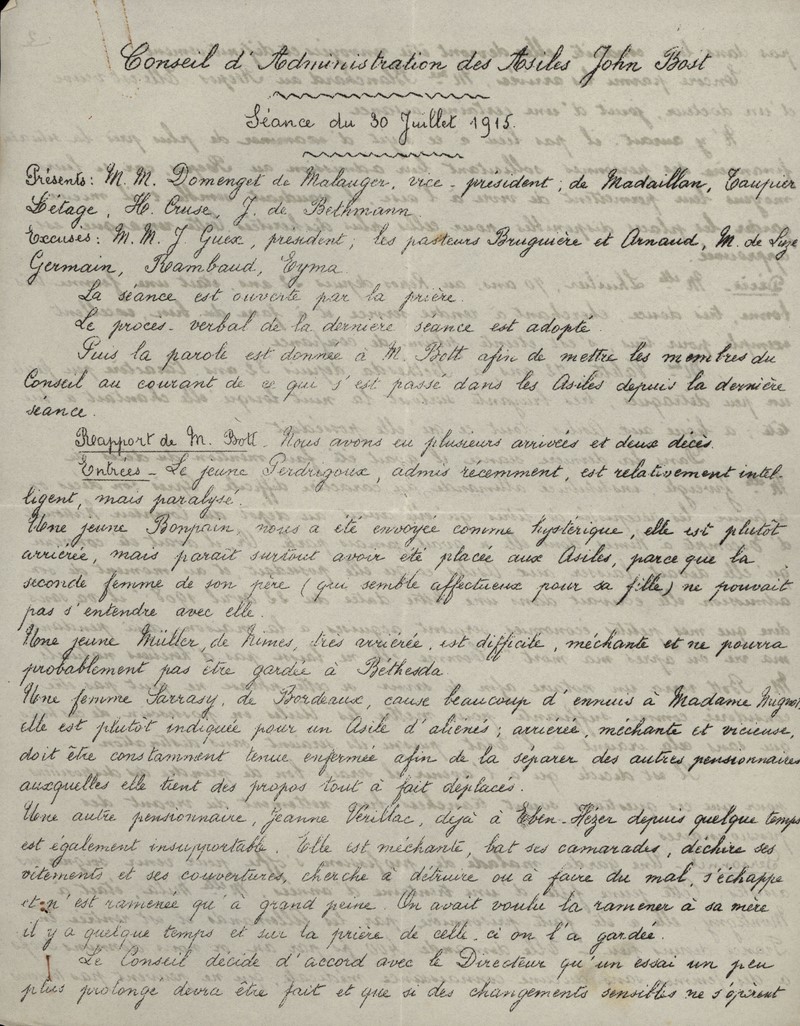 Conseil d'Administration des Asiles John Bost
Séance du 30 Juillet 1915.
Présents: M. M. Domenget de Malauger, vice-président; de Madaillan, Taupier
Létage, H. Cruse, J. de Bethmann
Excusés: M. M. J Guex, président; les pasteurs Bruguière et Arnaud, M. de Luze
Germain, Rambaud, Eyma.
La séance est ouverte par la prière.
Le procès-verbal de la dernière séance est adopté.
Puis la parole est donnée à M. Bott afin de mettre les membres du
Conseil au courant de ce qui s'est passé dans les Asiles depuis la dernière
séance.
Rapport de M. Bott. Nous avons eu plusieurs arrivées et deux décès.
Entrées - Le jeune Perdrigoux, admis récemment, est relativement intel-
ligent, mais paralysé.
Une jeune Bonpain, nous a été envoyée comme hystérique, elle est plutôt
arriérée, mais parait surtout avoir été placée aux Asiles, parce que la
seconde femme de son père (qui semble affectueux pour sa fille) ne pouvait
pas s'entendre avec elle.
Une jeune Müller, de Nimes, très arriérée, est difficile, méchante et ne pourra
probablement pas être gardée à Béthesda
Une femme Sarrasy, de Bordeaux, cause beaucoup d'ennuis à Madame
elle est plutôt indiquée pour un Asile d'aliénés; arriérée, méchante et vicieuse,
doit être constamment tenue enfermée afin de la séparer des autres pensionnaires
auxquelles elle tient des propos tout à fait déplacés.
Une autre pensionnaire, Jeanne Vérillac, déjà à Eben-Hézer depuis quelque temps
est également insupportable. Elle est méchante, bat ses camarades, déchire ses
vêtements et ses couvertures, cherche à détruire ou à faire du mal, s'échappe
et n'est ramenée qu'à grand peine. On avait voulu la ramener à sa mère
il y a quelque temps et sur la prière de celle-ci on l'a gardée.
Le Conseil décide d'accord avec le Directeur qu'un essai un peu
plus prolongé devra être fait et que si des changements sensibles ne s'opèrent